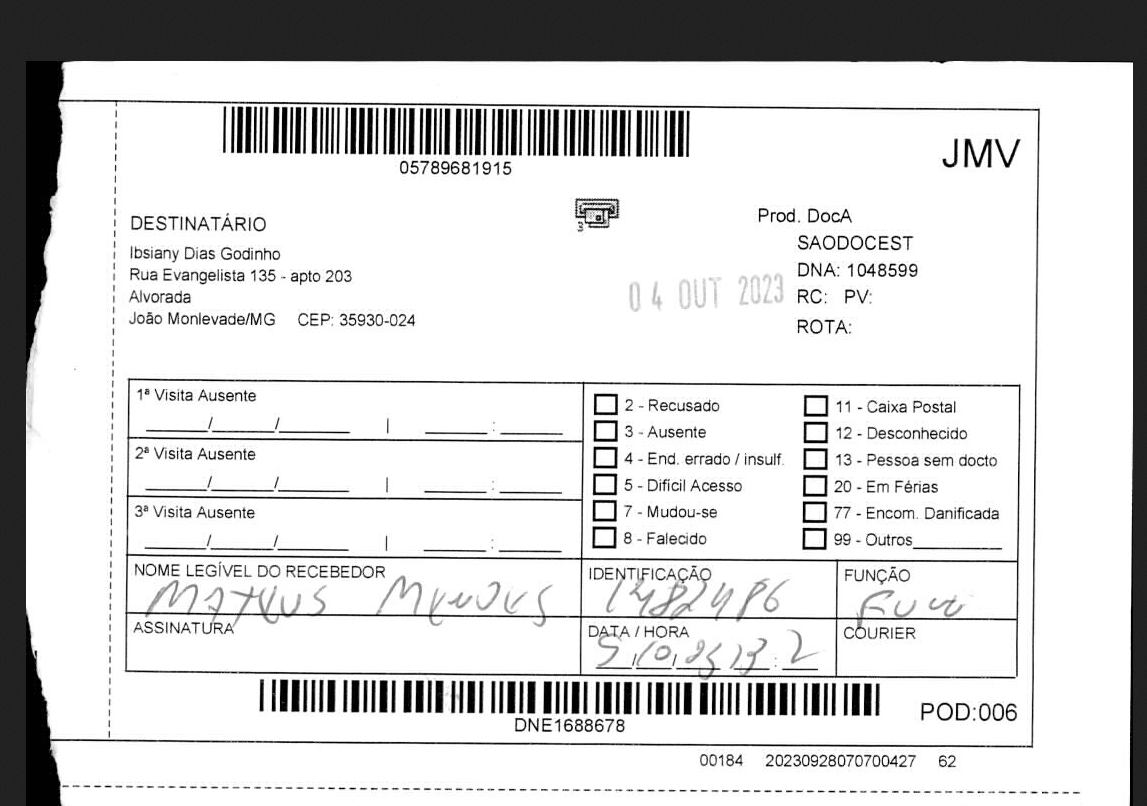 05789681915
JMV
DESTINATÁRIO
Ibsiany Dias Godinho
Rua Evangelista 135 - apto 203
Alvorada
João Monlevade/MG CEP: 35930-024
04 OUT 2023
Prod. DocA
SAODOCEST
DNA: 1048599
RC: PV:
ROTA:
1ª Visita Ausente
___/___/___ | ___:___
2ª Visita Ausente
___/___/___ | ___:___
3ª Visita Ausente
___/___/___ | ___:___
2 - Recusado
3 - Ausente
4 - End. errado / insuf.
5 - Difícil Acesso
7 - Mudou-se
8 - Falecido
11 - Caixa Postal
12 - Desconhecido
13 - Pessoa sem docto
20 - Em Férias
77 - Encom. Danificada
99 - Outros
NOME LEGÍVEL DO RECEBEDOR
MATEUS MENDES
IDENTIFICAÇÃO
FUNÇÃO
ASSINATURA
DATA / HORA
COURIER
DNE1688678
POD:006
00184 20230928070700427 62